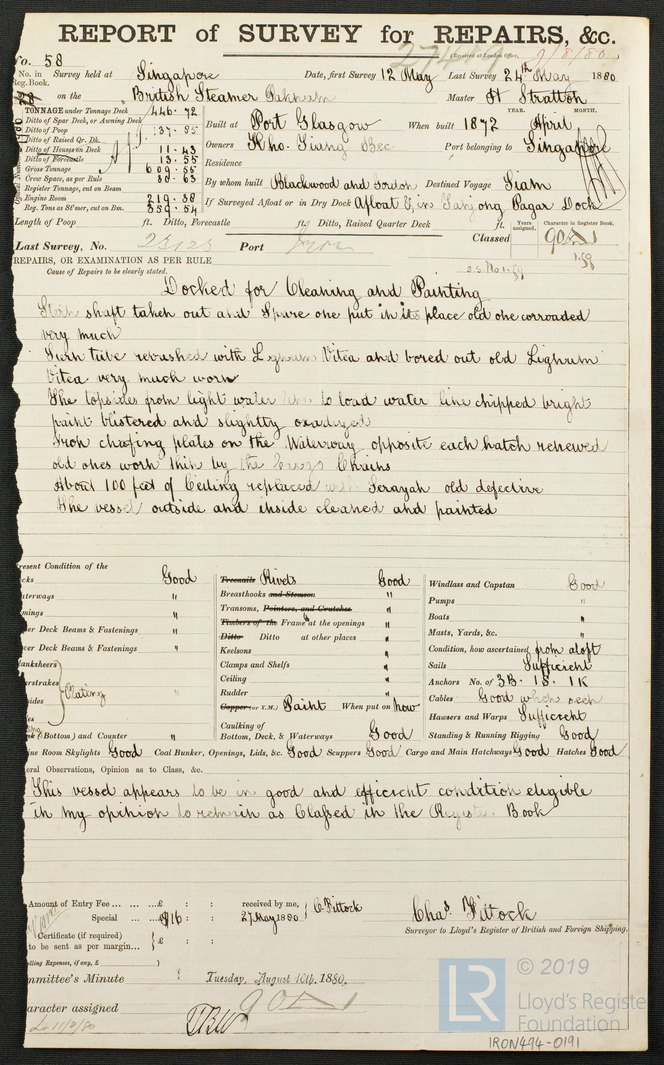 REPORT of SURVEY for REPAIRS, &c.
No. 58
Received at London Office,
9/8/80
No. in Reg. Book.
Survey held at Singapore Date, first Survey 12 May Last Survey 24th May 1880
on the British Steamer Master H Stratton
YEAR. MONTH.
TONNAGE under Tonnage Deck 446.72
Ditto of Spar Deck, or Awning Deck
Ditto of Poop 137.85
Ditto of Raised Qr. Dk.
Ditto of Houses on Deck 11.43
Ditto of Forecastle 13.55
Gross Tonnage 609.55
Crew Space, as per Rule 30.63
Register Tonnage, cut on Beam
Engine Room 219.38
Reg. Tons as St'mer, cut on Bm. 359.54
Built at Port Glasgow When built 1872 April
Owners Kho Tiang Bee Port belonging to Singapore
Residence
By whom built Blackwood and Gordon Destined Voyage Siam
If Surveyed Afloat or in Dry Dock Afloat & in Tanjong Pagar Dock
Length of Poop ft. Ditto, Forecastle ft. Ditto, Raised Quarter Deck ft.
Years assigned. Character in Register Book.
Last Survey, No. Port Classed 90 A 1
REPAIRS, OR EXAMINATION AS PER RULE
Cause of Repairs to be clearly stated.
Docked for Cleaning and Painting
Stern shaft taken out and Spare one put in its place old one corroaded
very much
Stern tube rebushed with Lignum Vitea and bored out old Lignum
Vitea very much worn
The topsides from light water line to load water line chipped bright
paint blistered and slightly oxadized
Iron chafing plates on the Waterway opposite each hatch renewed
old ones worn thin by the Cargo Chains
About 100 feet of Ceiling replaced with Serayah old defective
The vessel outside and inside cleaned and painted
Present Condition of the
Decks Good
Waterways "
Comings "
Upper Deck Beams & Fastenings "
Lower Deck Beams & Fastenings "
Planksheers
Plating "
(Bottom) and Counter "
Treenails Rivets Good
Breasthooks and Stemson "
Transoms, Pointers, and Crutches "
Timbers of the Frame at the openings "
Ditto Ditto at other places "
Keelsons "
Clamps and Shelfs "
Ceiling "
Rudder "
Copper (or Y.M.) Paint When put on Now
Caulking of
Bottom, Deck, & Waterways Good
Windlass and Capstan Good
Pumps "
Boats "
Masts, Yards, &c. "
Condition, how ascertained from aloft
Sails Sufficient
Anchors No. of 3B. 1S. 1K
Cables Good when seen
Hawsers and Warps Sufficient
Standing & Running Rigging Good
Engine Room Skylights Good Coal Bunker, Openings, Lids, &c. Good Scuppers Good Cargo and Main Hatchways Good Hatches Good
General Observations, Opinion as to Class, &c.
This vessel appears to be in good and efficient condition eligible
in my opinion to remain as Classed in the Register Book
Amount of Entry Fee ... £ : : received by me,
Special ... : : 27 May 1880 C. Pittock
Certificate (if required) to be sent as per margin... £ : :
Travelling Expenses, if any, £
Chas. Pittock
Surveyor to Lloyd's Register of British and Foreign Shipping.
Committee's Minute Tuesday, August 10th, 1880.
Character assigned 90 A 1
© 2019
LR
Lloyd's Register
Foundation
IRON494-0191